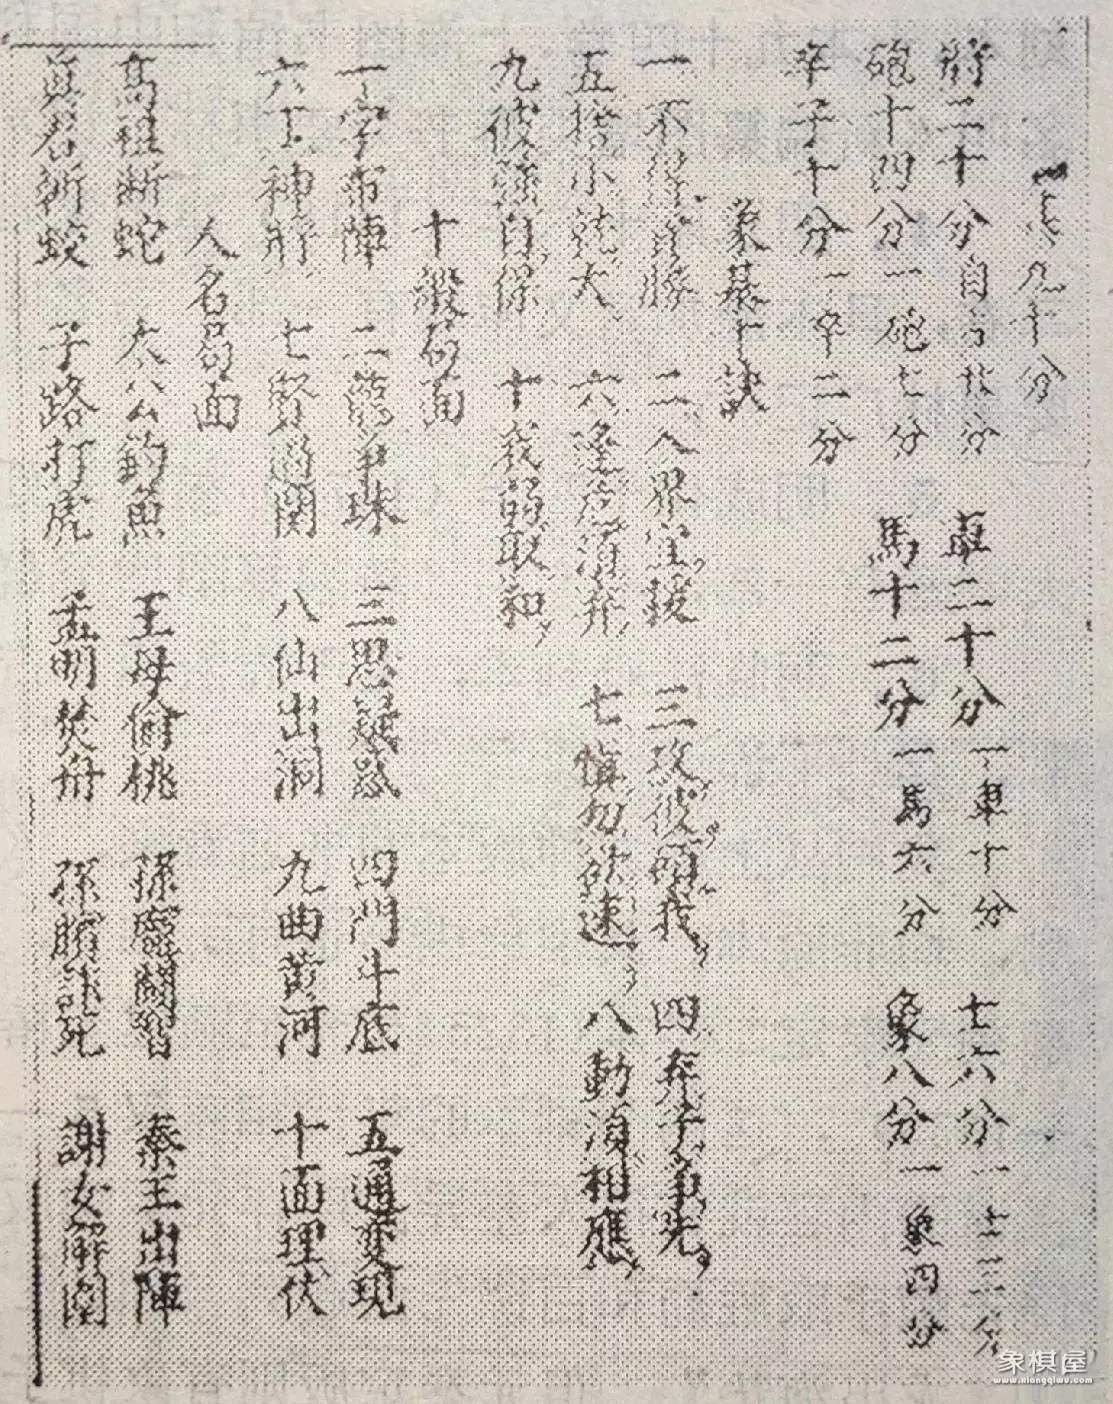 共九十分
將二十分自占廿分 車二十分一車十分 士六分一士三分
砲十四分一砲七分 馬十二分一馬六分 象八分一象四分
卒子十分一卒二分
象棊十訣
一不得貪勝 二入界宜援 三攻彼顧我 四弃子爭先
五捨小就大 六逢危須弃 七慎勿欲速 八動須相應
九彼強自保 十我弱取和
十般局面
一字布陣 二龍爭珠 三思 四門斗底 五通變現
六丁神將 七賢過關 八仙出洞 九曲黃河 十面埋伏
人名局面
高祖斬蛇 太公釣魚 王母偷桃 孫龐鬪智 秦王出陣
真君斬蛟 子路打虎 孟明焚舟 孫臏詐死 謝女解圍
象棋屋
www.xiangqiwu.com